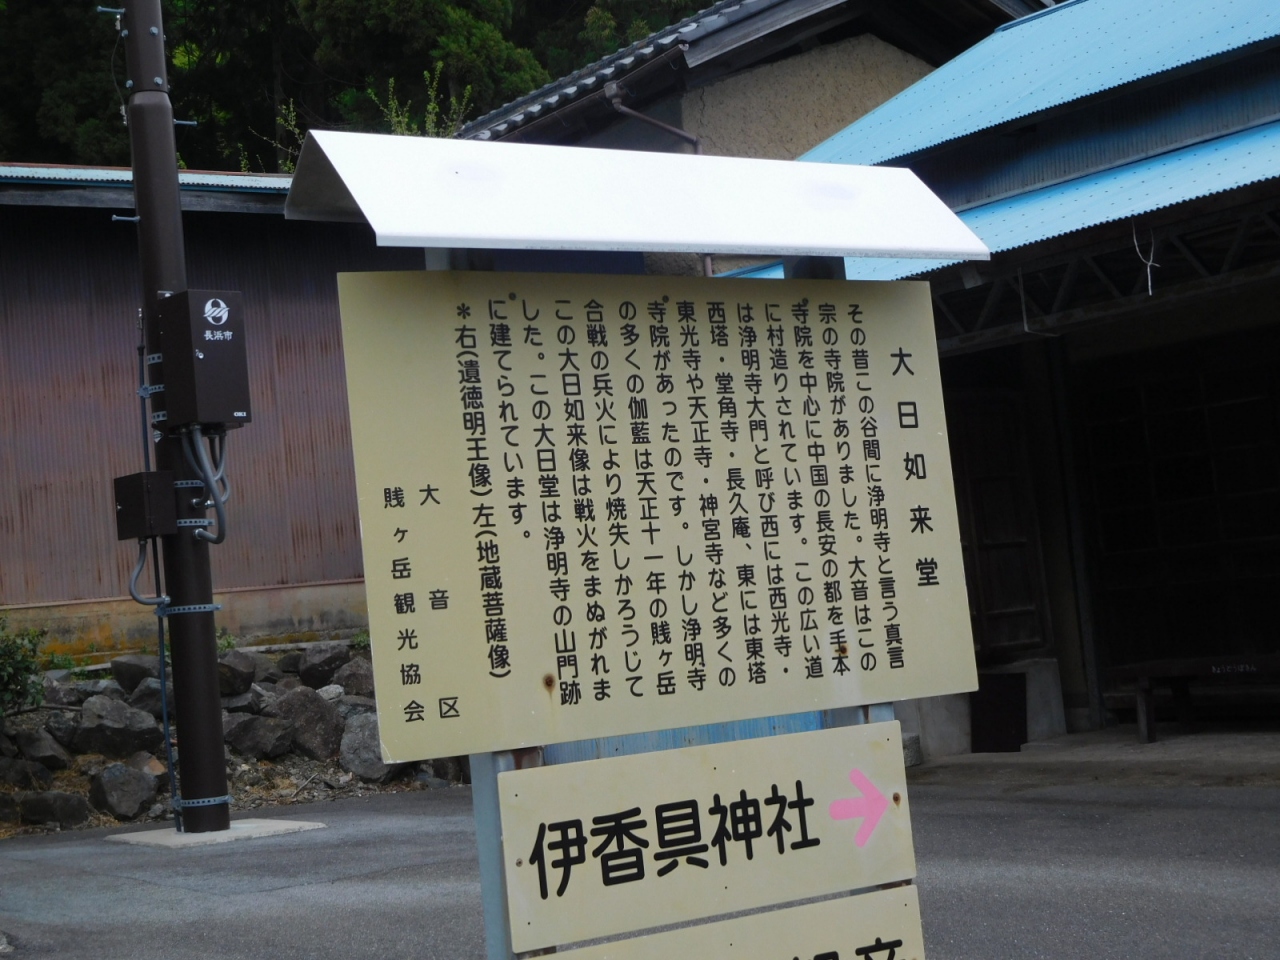 大日如来堂
その昔この谷間に浄明寺と言う真言
宗の寺院がありました。大音はこの
寺院を中心に中国の長安の都を手本
に村造りされています。この広い道
は浄明寺大門と呼び西には西光寺・
西塔・堂角寺・長久庵、東には東塔
東光寺や天正寺・神宮寺など多くの
寺院があったのです。しかし浄明寺
の多くの伽藍は天正十一年の賤ヶ岳
合戦の兵火により焼失しかろうじて
この大日如来像は戦火をまぬがれま
した。この大日堂は浄明寺の山門跡
に建てられています。
＊右(遺徳明王像)左(地蔵菩薩像)
大音区
賤ヶ岳観光協会
伊香具神社
長浜市